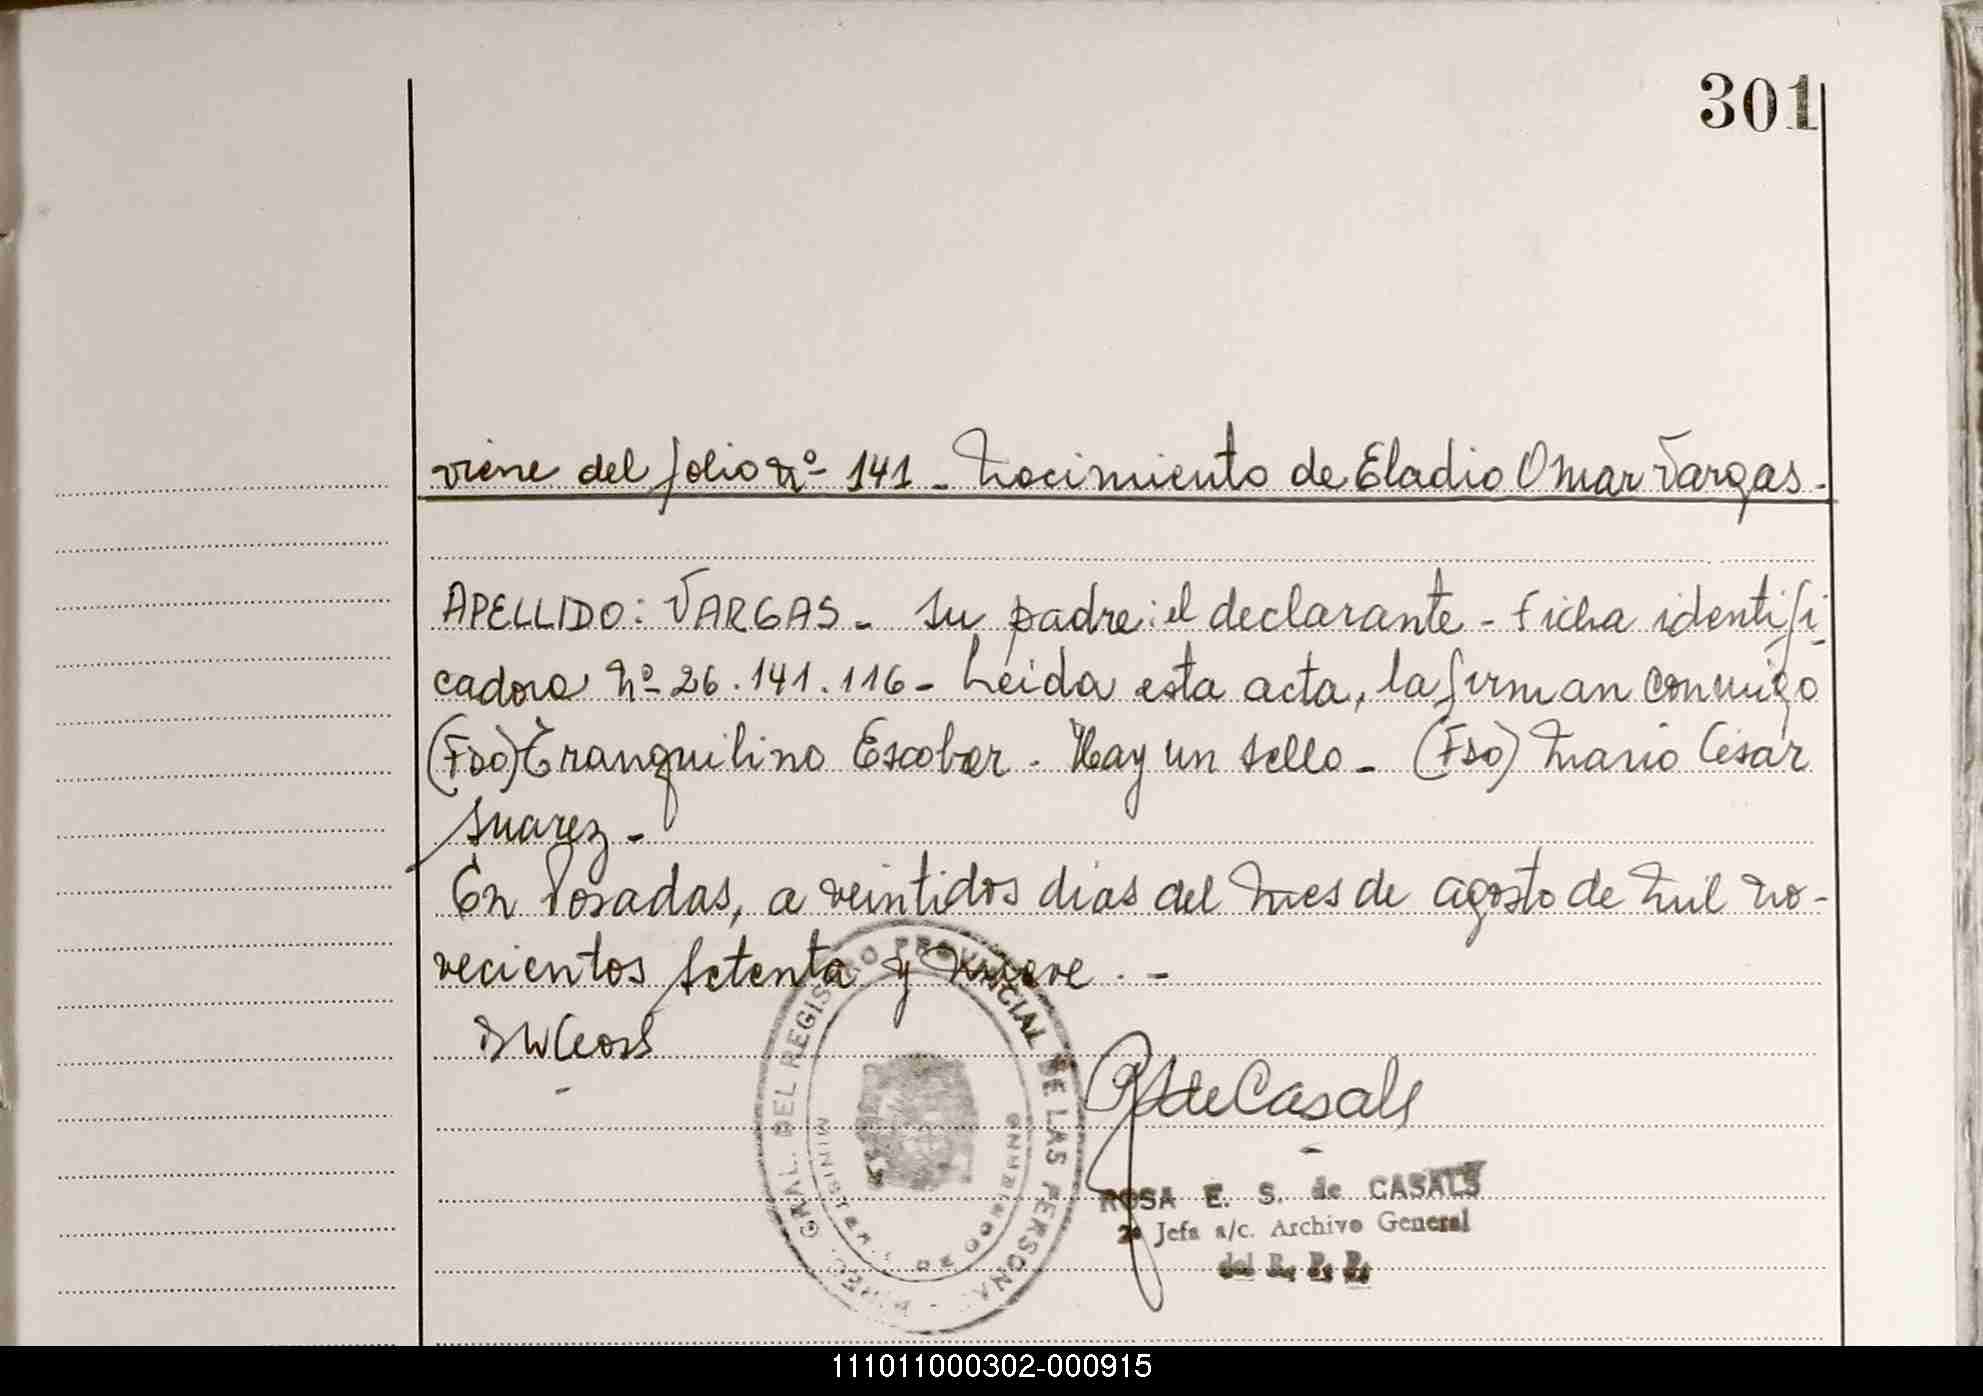 301
viene del folio Nº 141 - Nacimiento de Eladio Omar Vargas -
APELLIDO: VARGAS - su padre: el declarante - ficha identifi
cadora Nº 26.141.116 - Leída esta acta, la firman conmigo
(Fdo) Tranquilino Escobar - Hay un sello - (Fdo) Mario César
Suarez -
En Posadas, a veintidos dias del mes de agosto de mil no-
vecientos setenta y nueve . -
DIREC. GRAL. DEL REGISTRO PROVINCIAL DE LAS PERSONAS
MINIST
GOBIERNO
RS de Casals
ROSA E. S. de CASALS
2ª Jefa a/c. Archivo General
del R. P. P.
111011000302-000915